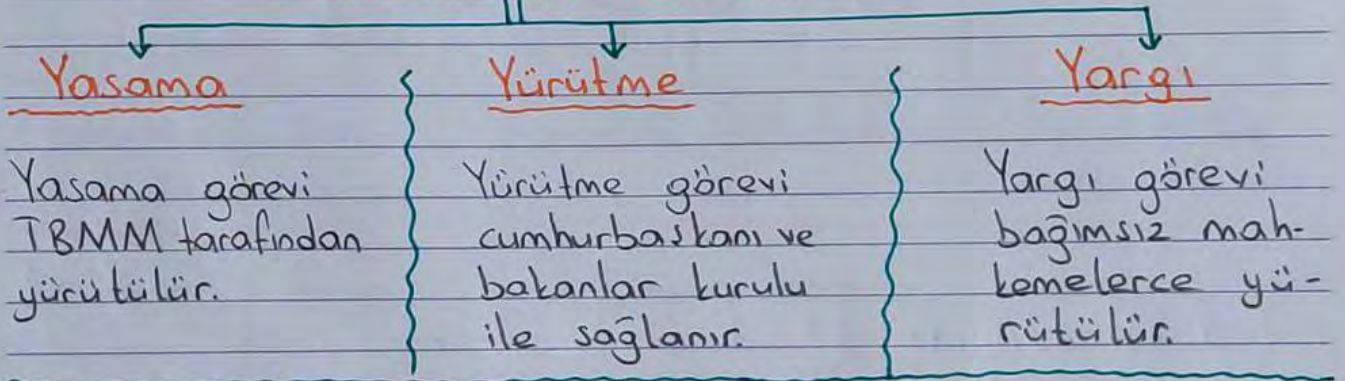 Yasama
Yasama görevi
TBMM tarafından
yürütülür.
Yürütme
Yürütme görevi
cumhurbaşkanı ve
bakanlar kurulu
ile sağlanır.
Yargı
Yargı görevi
bağımsız mah-
kemelerce yü-
rütülür.